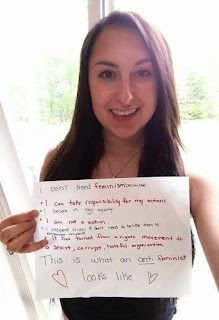 I DON'T Need feminism because
• I can take responsibility for my actions
• I believe in real equality
• I am not a victim
• I respect men & don't need to belittle them to
• It has turned from a rights movement to
a sexist, corrupt, hateful organisation
This is what an anti feminist
looks like